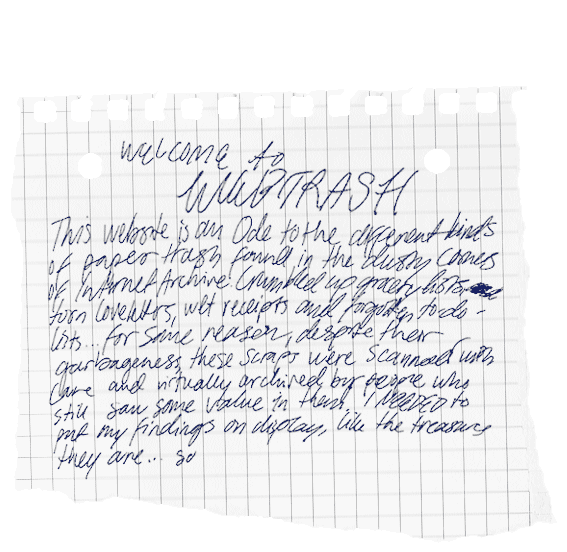 welcome to
WEBTRASH
This website is an Ode to the different kinds
of paper trash found in the dusty corners
of Internet Archive. Crumbled up grocery lists,
torn loveletters, wet receipts and forgotten to do -
lists... for some reason, despite their
garbageness, these scraps were scanned with
care and virtually archived by people who
still saw some value in them. I NEEDED to
put my findings on display, like the treasures
they are... so